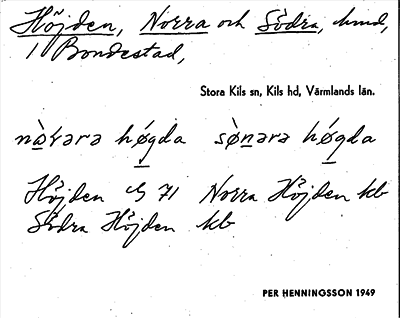 Höjden, Norra och Södra, hmd,
i Bondestad,
Stora Kils sn, Kils hd, Värmlands län.
nàrara hǿgda sø̀nara hǿgda
Höjden 71 Norra Höjden kb
Södra Höjden kb
PER HENNINGSSON 1949